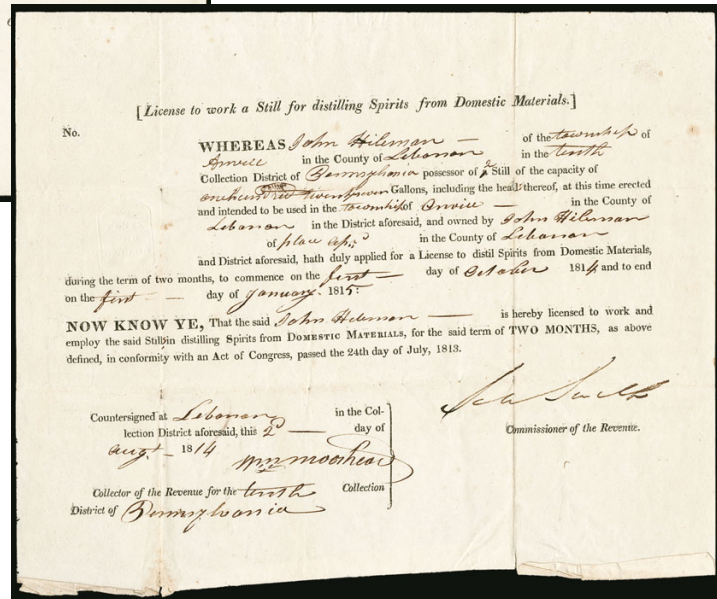 [License to work a Still for distilling Spirits from Domestic Materials.]
No.
WHEREAS John Hileman — of the township of
Anvill in the County of Lebanon in the tenth
Collection District of Pennsylvania possessor of 2 Still of the capacity of
one hundred twenty seven Gallons, including the head thereof, at this time erected
and intended to be used in the township of Anvill — in the County of
Lebanon in the District aforesaid, and owned by John Hileman
of place afs.d in the County of Lebanon
and District aforesaid, hath duly applied for a License to distil Spirits from Domestic Materials,
during the term of two months, to commence on the first — day of October 1814 and to end
on the first — day of January. 1815:
NOW KNOW YE, That the said John Hileman — is hereby licensed to work and
employ the said Still in distilling Spirits from DOMESTIC MATERIALS, for the said term of TWO MONTHS, as above
defined, in conformity with an Act of Congress, passed the 24th day of July, 1813.
Countersigned at Lebanon in the Col-
lection District aforesaid, this 2d — day of
Augt. 1814
Wm Moorhead
Commissioner of the Revenue.
Collector of the Revenue for the tenth Collection
District of Pennsylvania